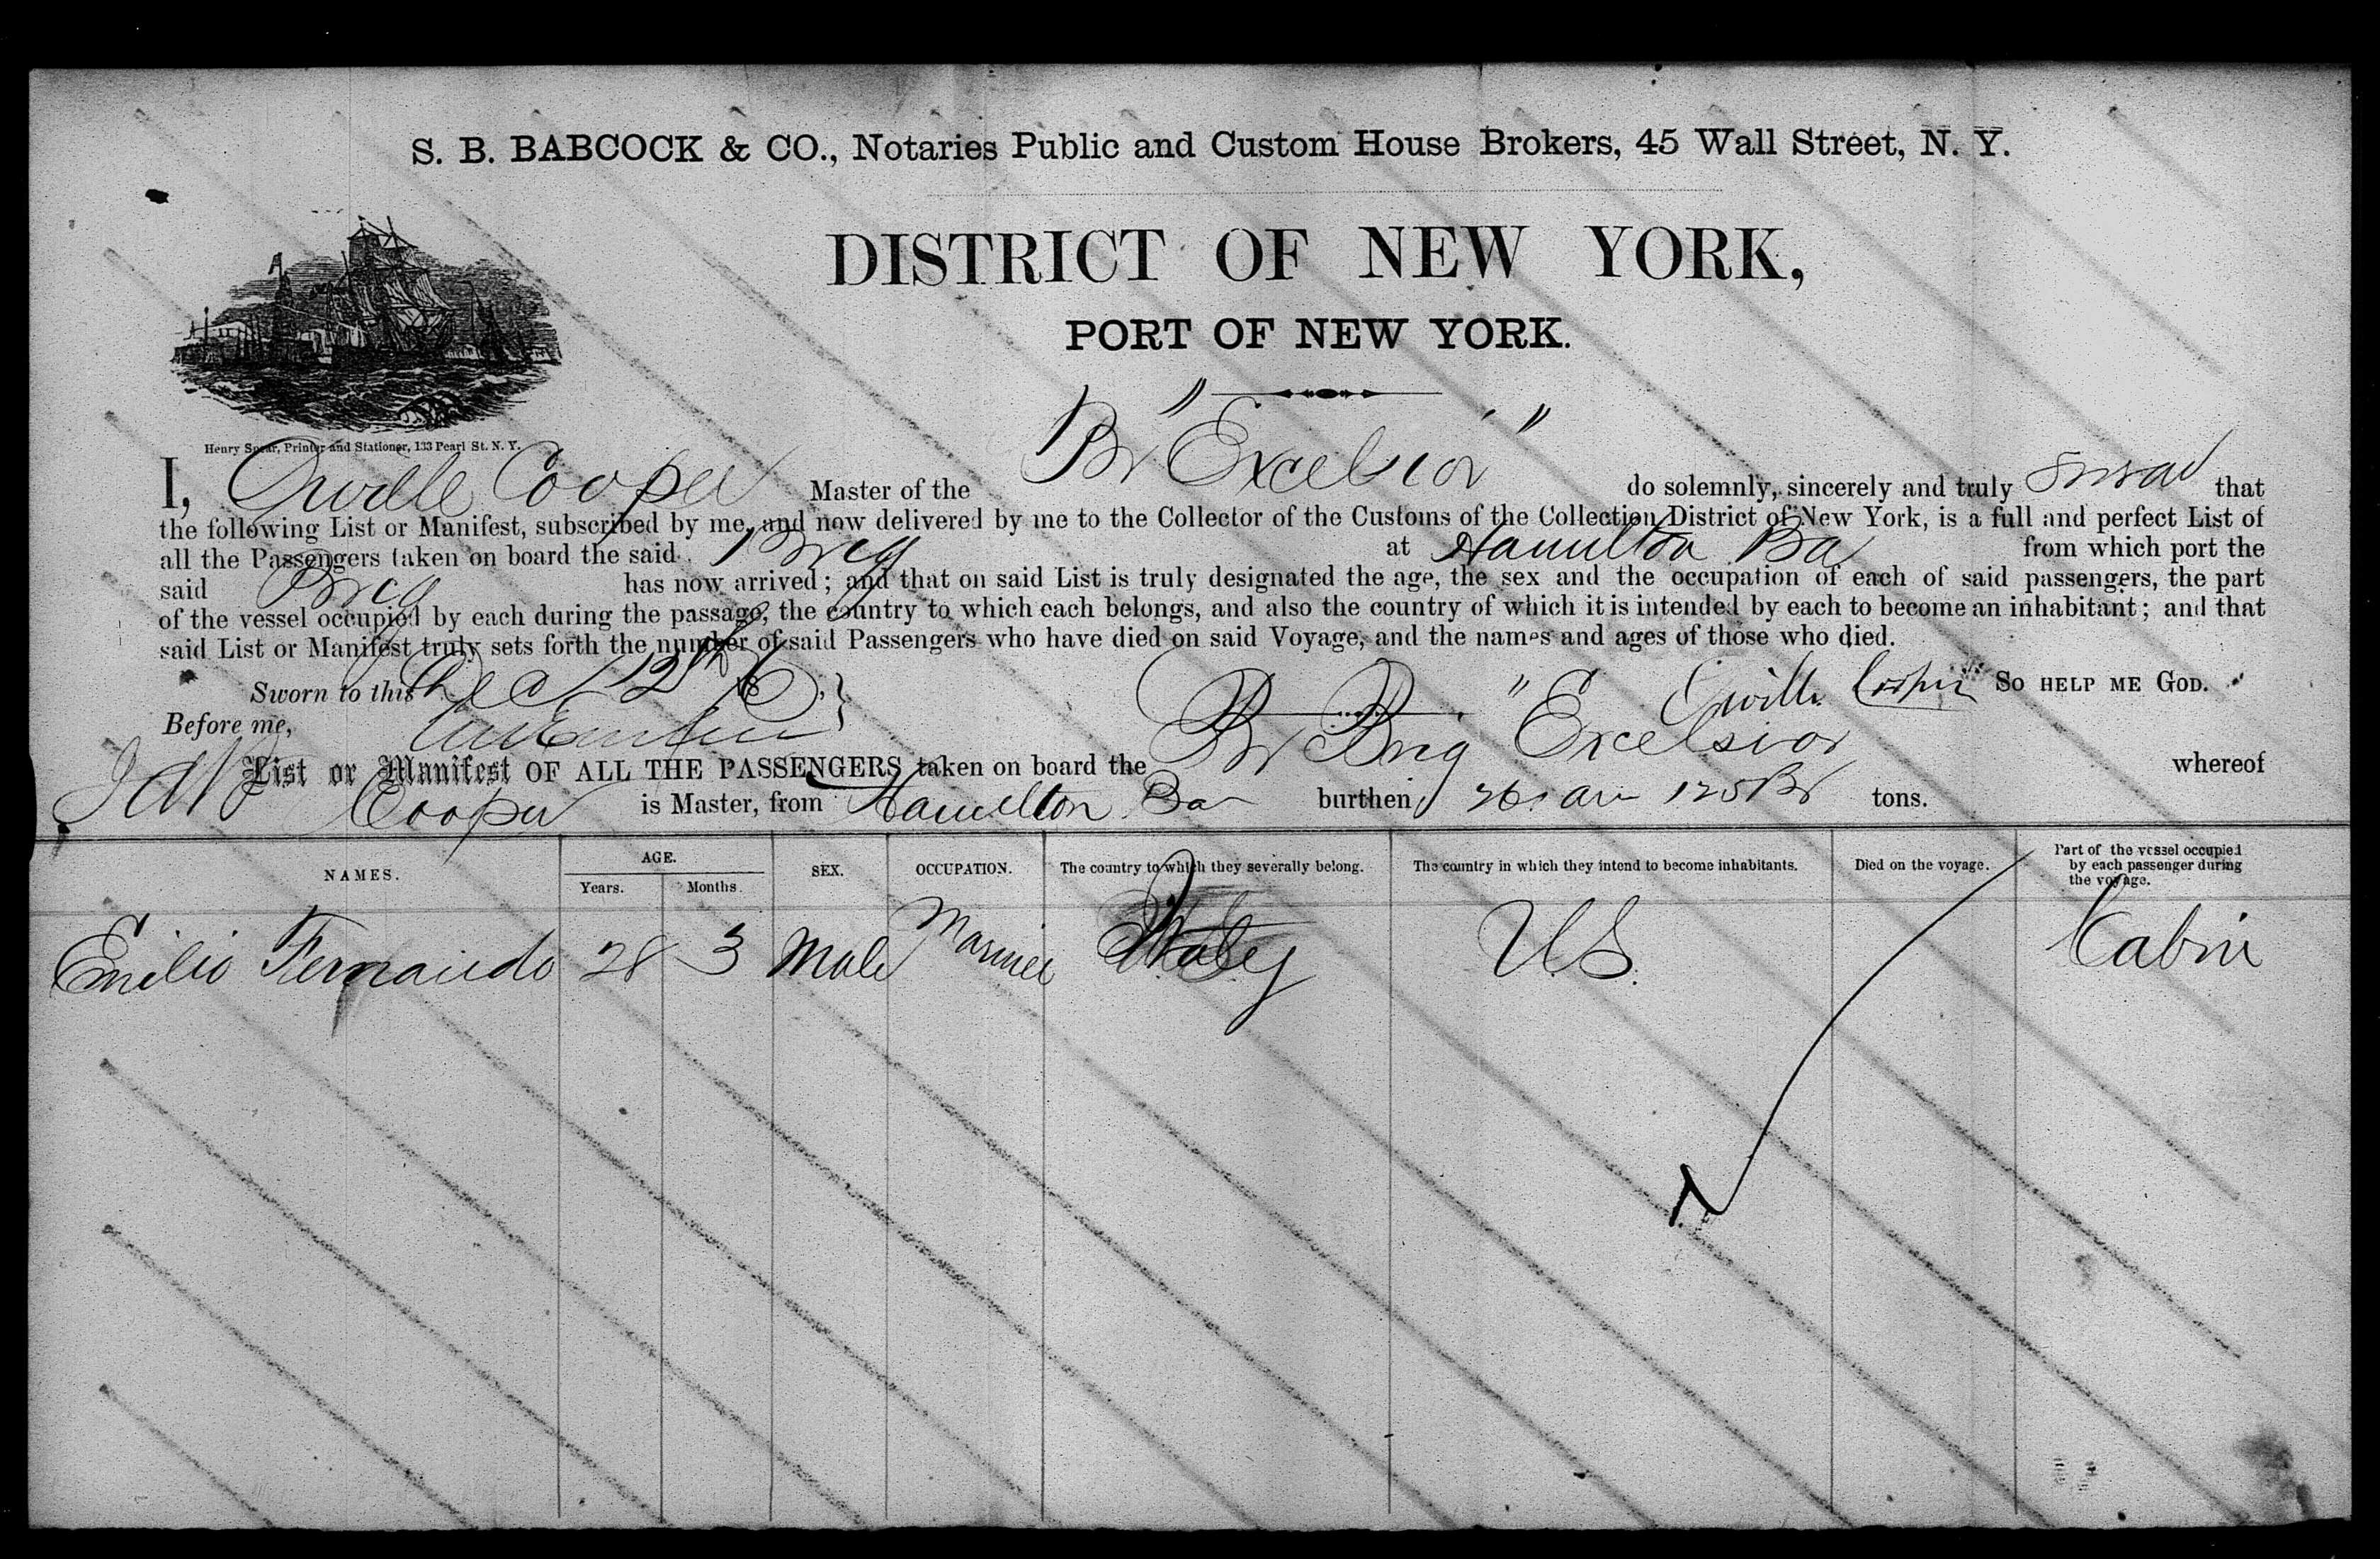 S. B. BABCOCK & CO., Notaries Public and Custom House Brokers, 45 Wall Street, N. Y.
DISTRICT OF NEW YORK,
PORT OF NEW YORK.
Henry Spear, Printer and Stationer, 133 Pearl St. N. Y.
I, Orville Cooper Master of the Br "Excelsior" do solemnly, sincerely and truly swear that
the following List or Manifest, subscribed by me, and now delivered by me to the Collector of the Customs of the Collection District of New York, is a full and perfect List of
all the Passengers taken on board the said Brig at Hamilton Ba from which port the
said Brig has now arrived; and that on said List is truly designated the age, the sex and the occupation of each of said passengers, the part
of the vessel occupied by each during the passage, the country to which each belongs, and also the country of which it is intended by each to become an inhabitant; and that
said List or Manifest truly sets forth the number of said Passengers who have died on said Voyage, and the names and ages of those who died.
Sworn to this Dec 12th Orville Cooper SO HELP ME GOD.
Before me,
List or Manifest OF ALL THE PASSENGERS taken on board the Br Brig "Excelsior whereof
Cooper is Master, from Hamilton Ba burthen tons.
NAMES. AGE. SEX. OCCUPATION. The country to which they severally belong. The country in which they intend to become inhabitants. Died on the voyage. Part of the vessel occupied by each passenger during the voyage.
Years. Months.
Emilio Fernando 28 3 Male Mariner Italy U.S. Cabin